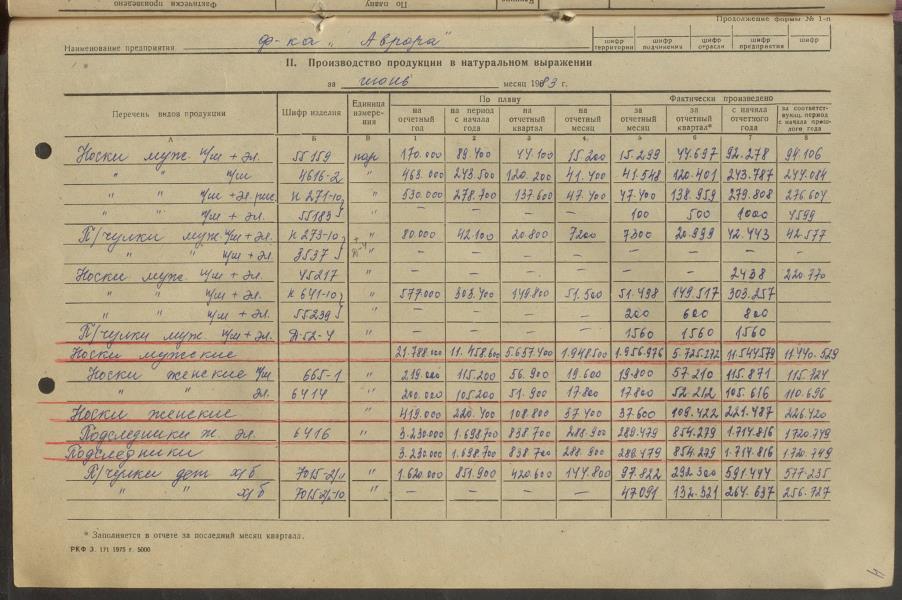 Фактически произведено
По плану
Продолжение формы № 1-п
Наименование предприятия ф-ка „Аврора"
шифр территории шифр подчинения шифр отрасли шифр предприятия шифр
II. Производство продукции в натуральном выражении
за июнь месяц 1983 г.
Перечень видов продукции Шифр изделия Единица измерения По плану Фактически произведено
на отчетный год на период с начала года на отчетный квартал на отчетный месяц за отчетный месяц за отчетный квартал* с начала отчетного года за соответствующ. период с начала прошлого года
А Б В 1 2 3 4 5 6 7 8
Носки муж. п/ш + эл. 55159 пар 170.000 89.400 44.100 15.200 15.299 44.697 92.278 94.106
" " п/ш 4616-2 " 463.000 243.500 120.200 41.400 41.548 120.401 243.787 244.084
" " п/ш +эл. рис. н 271-10 " 530.000 278.700 137.600 47.400 47.400 138.959 279.808 276.604
" " п/ш + эл. 55183 " — — — — 100 500 1000 4599
П/чулки муж. п/ш + эл. н 273-10 " 80.000 42.100 20.800 7200 7300 20.999 42.443 42.577
" " п/ш + эл. 3537 " — — — — — — — —
Носки муж. п/ш 45217 " — — — — — — 2438 220.770
" " п/ш + эл. н 641-10 " 577.000 303.400 149.800 51.500 51.498 149.517 303.257
" " п/ш + эл. 55239 " — — — — 200 600 800
П/чулки муж. п/ш + эл. Д-52-4 " — — — — 1560 1560 1560
Носки мужские 21.788.000 11.458.600 5.657.400 1.948.500 1.956.976 5.725.272 11.544579 11.440.529
Носки женские п/ш 665-1 " 219.000 115.200 56.900 19.600 19.800 57.210 115.871 115.724
" " эл. 6414 " 200.000 105.200 51.900 17.800 17.800 52.212 105.616 110.696
Носки женские 419.000 220.400 108.800 37.400 37.600 109.422 221.487 226.420
Подследники ж. эл. 6416 3.230.000 1.698.700 838 700 288.900 289.479 854.279 1.714.816 1.720.749
Подследники 3.230.000 1.698.700 838 700 288.900 289.479 854.279 1.714.816 1.720.749
П/чулки дет х/б 7015-2/11 " 1.620.000 851.900 420.600 144.800 97.822 292.300 591.444 577.235
" " х/б 7015-2/-10 " — — — — 47091 132.321 264.637 256.727
* Заполняется в отчете за последний месяц квартал.
РКФ З. 171 1975 г. 5000